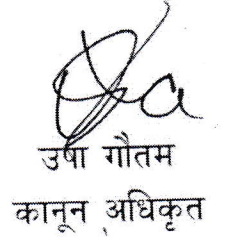 उषा गौतम
कानून अधिकृत